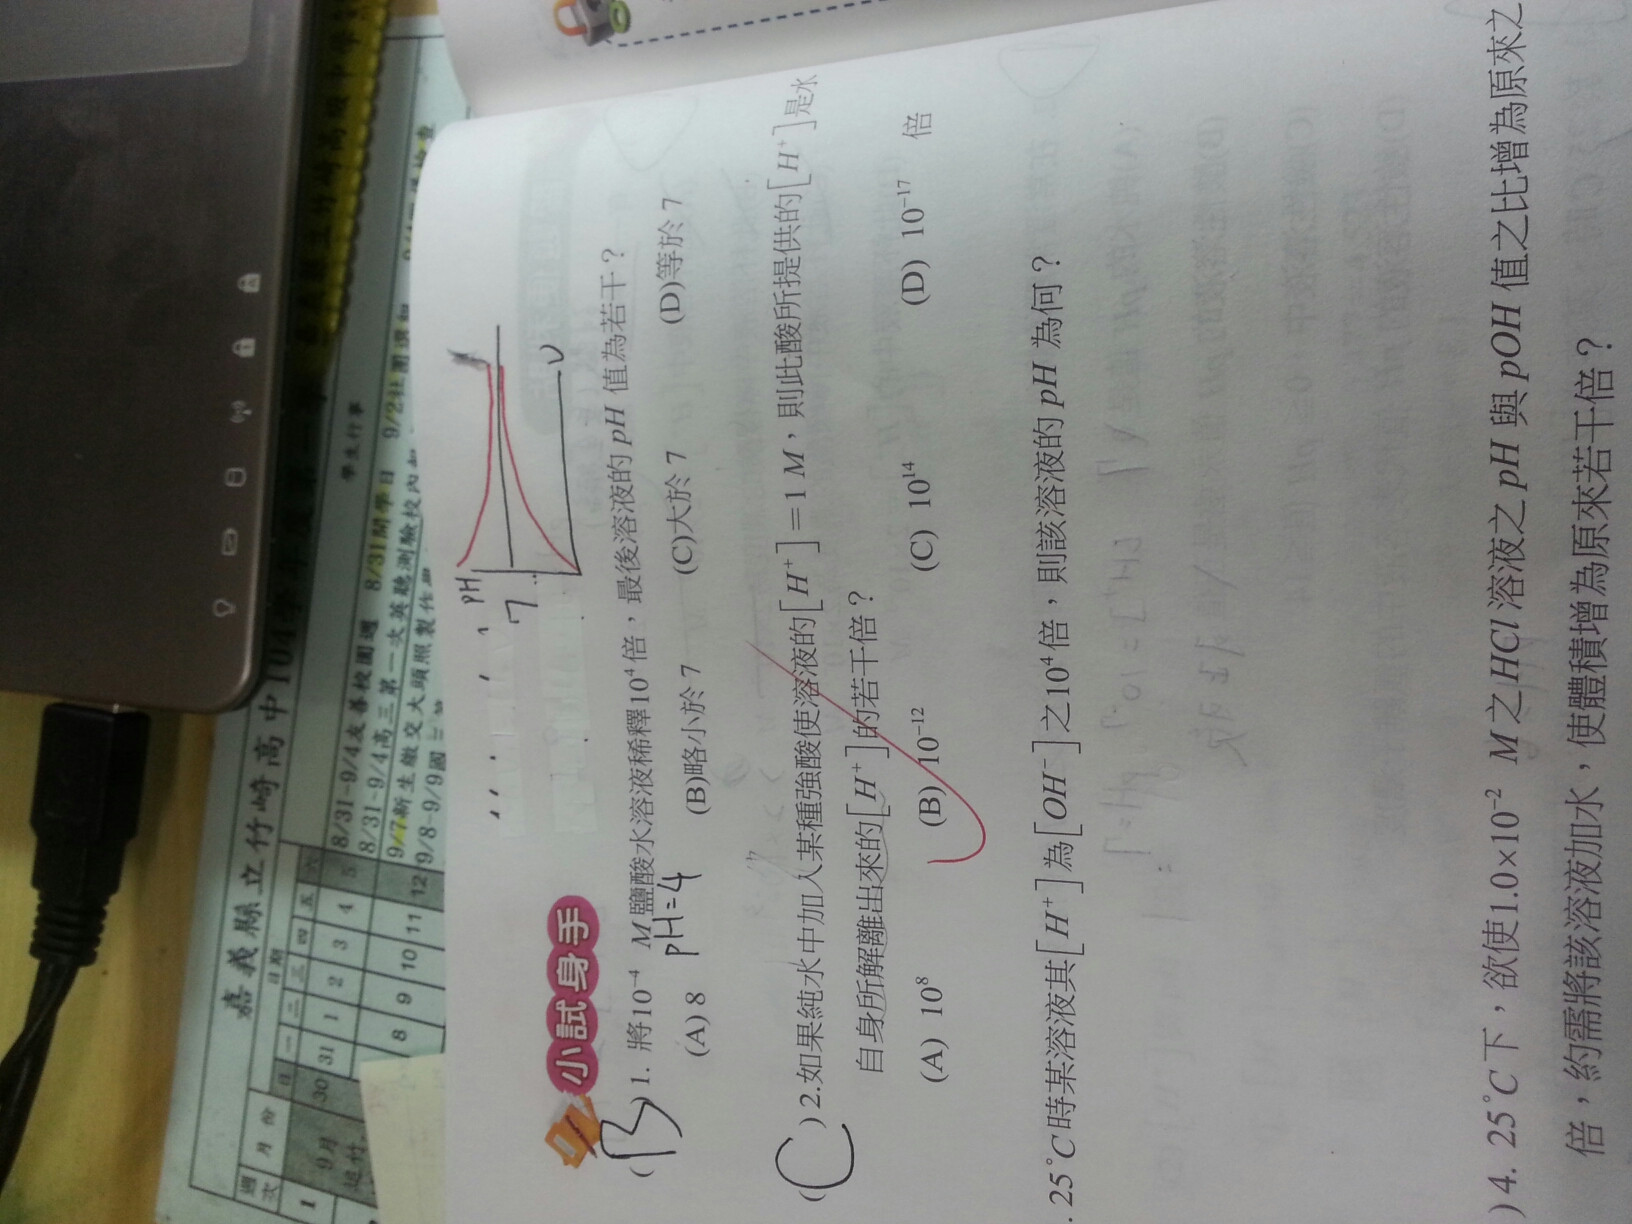 嘉義縣立竹崎高中104
學生行事
週次 月份 日期
日 一 二 三 四 五 六
1 9月 30 31 1 2 3 4 5
8 9 10 11 12
8/31-9/4友善校園週 8/31開學日
8/31-9/4高三第一次英聽測驗校內
9/7新生繳交大頭照製作
9/8-9/9國三
PH
7
V
小試身手
(B)1. 將10⁻⁴ M鹽酸水溶液稀釋10⁴倍,最後溶液的pH 值為若干?
PH=4
(A) 8 (B)略小於 7 (C)大於 7 (D)等於 7
(C)2.如果純水中加入某種強酸使溶液的[H⁺]=1 M,則此酸所提供的[H⁺]是水
自身所解離出來的[H⁺]的若干倍?
(A) 10⁸ (B) 10⁻¹² (C) 10¹⁴ (D) 10⁻¹⁷ 倍
. 25°C時某溶液其[H⁺]為[OH⁻]之10⁴倍,則該溶液的pH 為何?
) 4. 25°C下,欲使1.0×10⁻² M之HCl溶液之pH與pOH值之比增為原來之
倍,約需將該溶液加水,使體積增為原來若干倍?